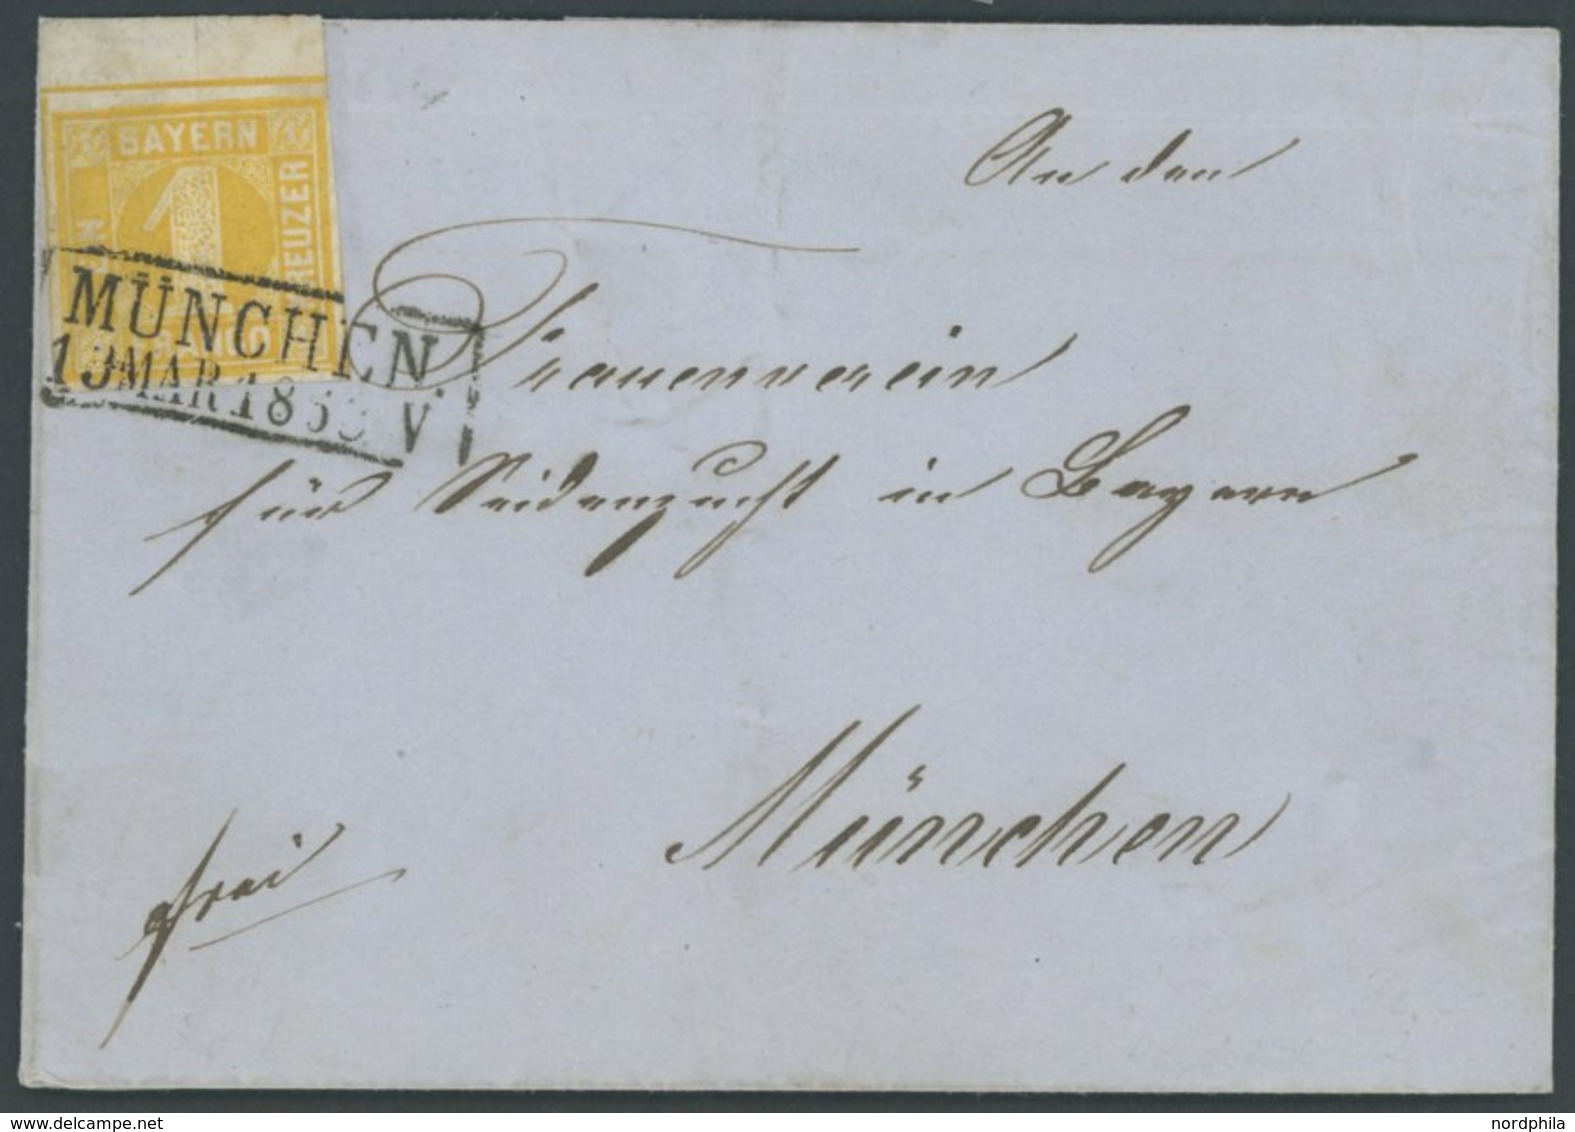 BAYERN
1
KREUZER
MÜNCHEN.
19 MAR 1863 V.
An den
Frauenverein
für Seidenzucht in Bayern
München
frei
www.delcampe.net
nordphila